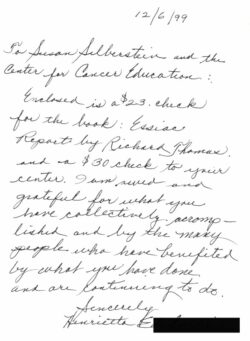 12/6/99
To Susan Silberstein and the
Center for Cancer Education:,
Enclosed is a $23. check
for the book: Essiac
Report by Richard Thomas.
and a $30 check to your
center. I am awed and
grateful for what you
have collectively accomp-
lished and by the many
people who have benefited
by what you have done
and are continuing to do.
Sincerely
Henrietta